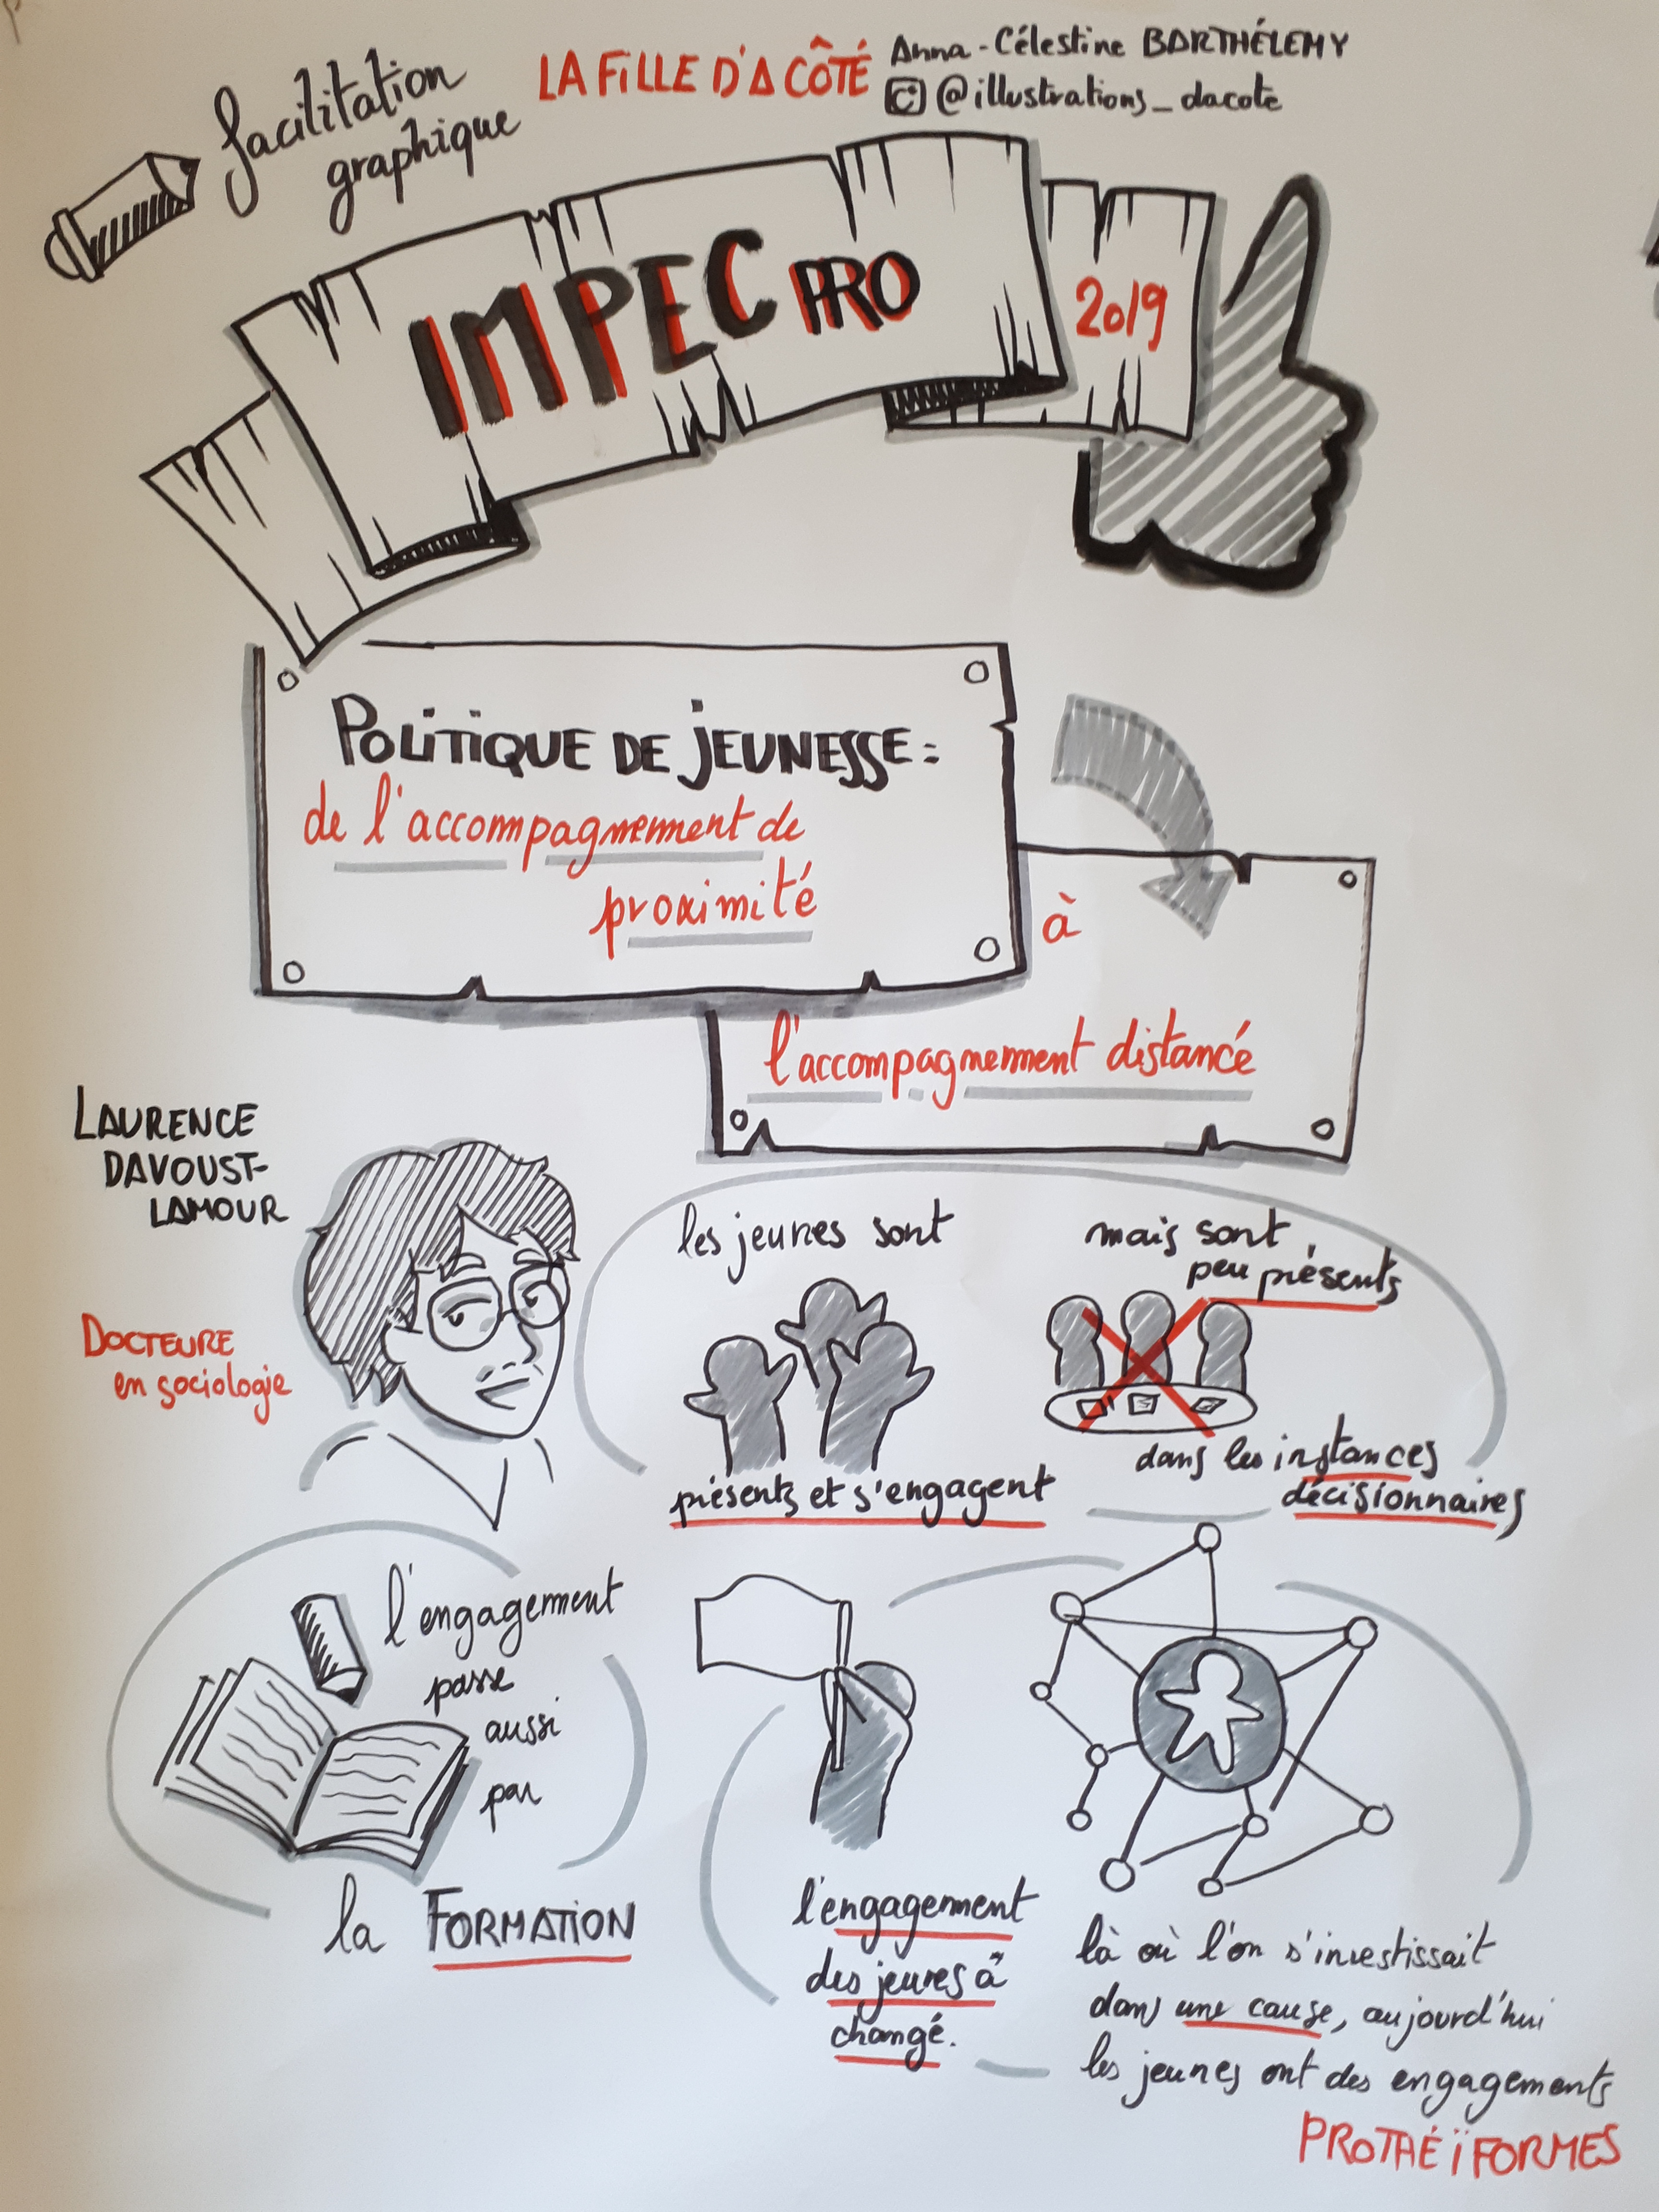 facilitation
graphique
LA FILLE D'A CÔTÉ
Anna-Célestine BARTHÉLEMY
@illustrations_dacote
IMPEC PRO
2019
POLITIQUE DE JEUNESSE :
de l'accompagnement de
proximité
à
l'accompagnement distancé
LAURENCE
DAVOUST-
LAMOUR
DOCTEURE
en sociologie
les jeunes sont
présents et s'engagent
mais sont
peu présents
dans les instances
décisionnaires
l'engagement
passe
aussi
par
la FORMATION
l'engagement
des jeunes à
changé.
là où l'on s'investissait
dans une cause, aujourd'hui
les jeunes ont des engagements
PROTAÉÏFORMES